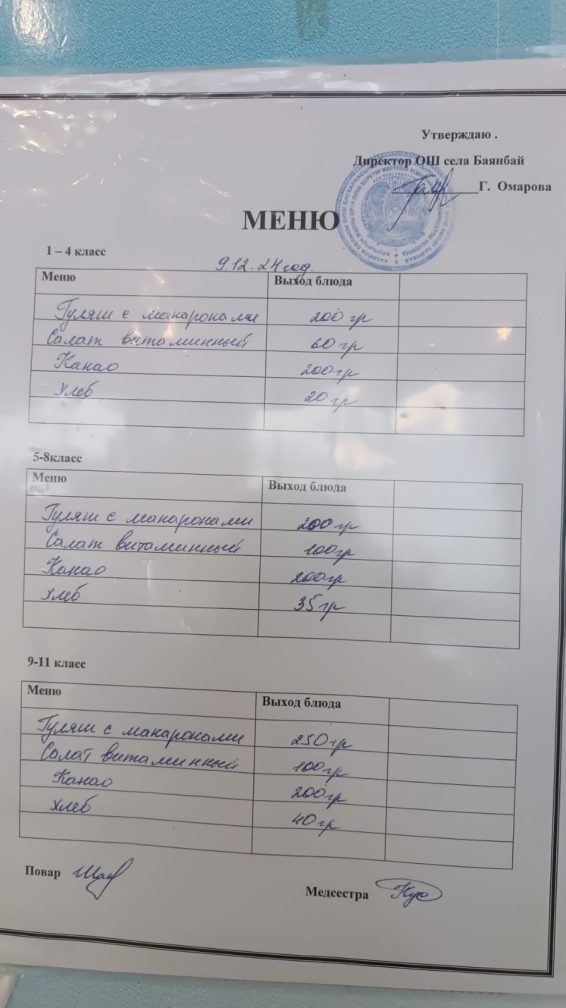 Утверждаю .
Директор ОШ села Баянбай
Г. Омарова
МЕНЮ
1 – 4 класс
9.12.24 год.
Меню Выход блюда
Гуляш с макаронами 200 гр
Салат витаминный 60 гр
Какао 200 гр
Хлеб 20 гр
5-8класс
Меню Выход блюда
Гуляш с макаронами 200 гр
Салат витаминный 100 гр
Какао 200 гр
Хлеб 35 гр
9-11 класс
Меню Выход блюда
Гуляш с макаронами 250 гр
Салат витаминный 100 гр
Какао 200 гр
Хлеб 40 гр
Повар
Медсестра